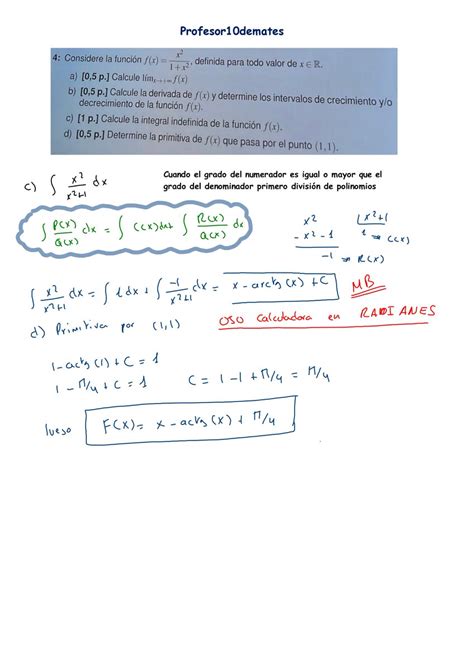 Profesor10demates
4: Considere la función f(x) = x²/(1 + x²), definida para todo valor de x ∈ ℝ.
a) [0,5 p.] Calcule lím x→+∞ f(x)
b) [0,5 p.] Calcule la derivada de f(x) y determine los intervalos de crecimiento y/o
decrecimiento de la función f(x).
c) [1 p.] Calcule la integral indefinida de la función f(x).
d) [0,5 p.] Determine la primitiva de f(x) que pasa por el punto (1,1).
c) ∫ x²/(x²+1) dx
Cuando el grado del numerador es igual o mayor que el
grado del denominador primero división de polinomios
∫ P(x)/Q(x) dx = ∫ C(x) dx + ∫ R(x)/Q(x) dx
x² | x²+1
-x² -1 1 ⇒ C(x)
-1 ⇒ R(x)
∫ x²/(x²+1) dx = ∫ 1 dx + ∫ -1/(x²+1) dx = x - arctg(x) + C MB
OSO Calculadora en RADIANES
d) Primitiva por (1,1)
1 - actg(1) + C = 1
1 - π/4 + C = 1 C = 1 - 1 + π/4 = π/4
luego F(x) = x - actg(x) + π/4